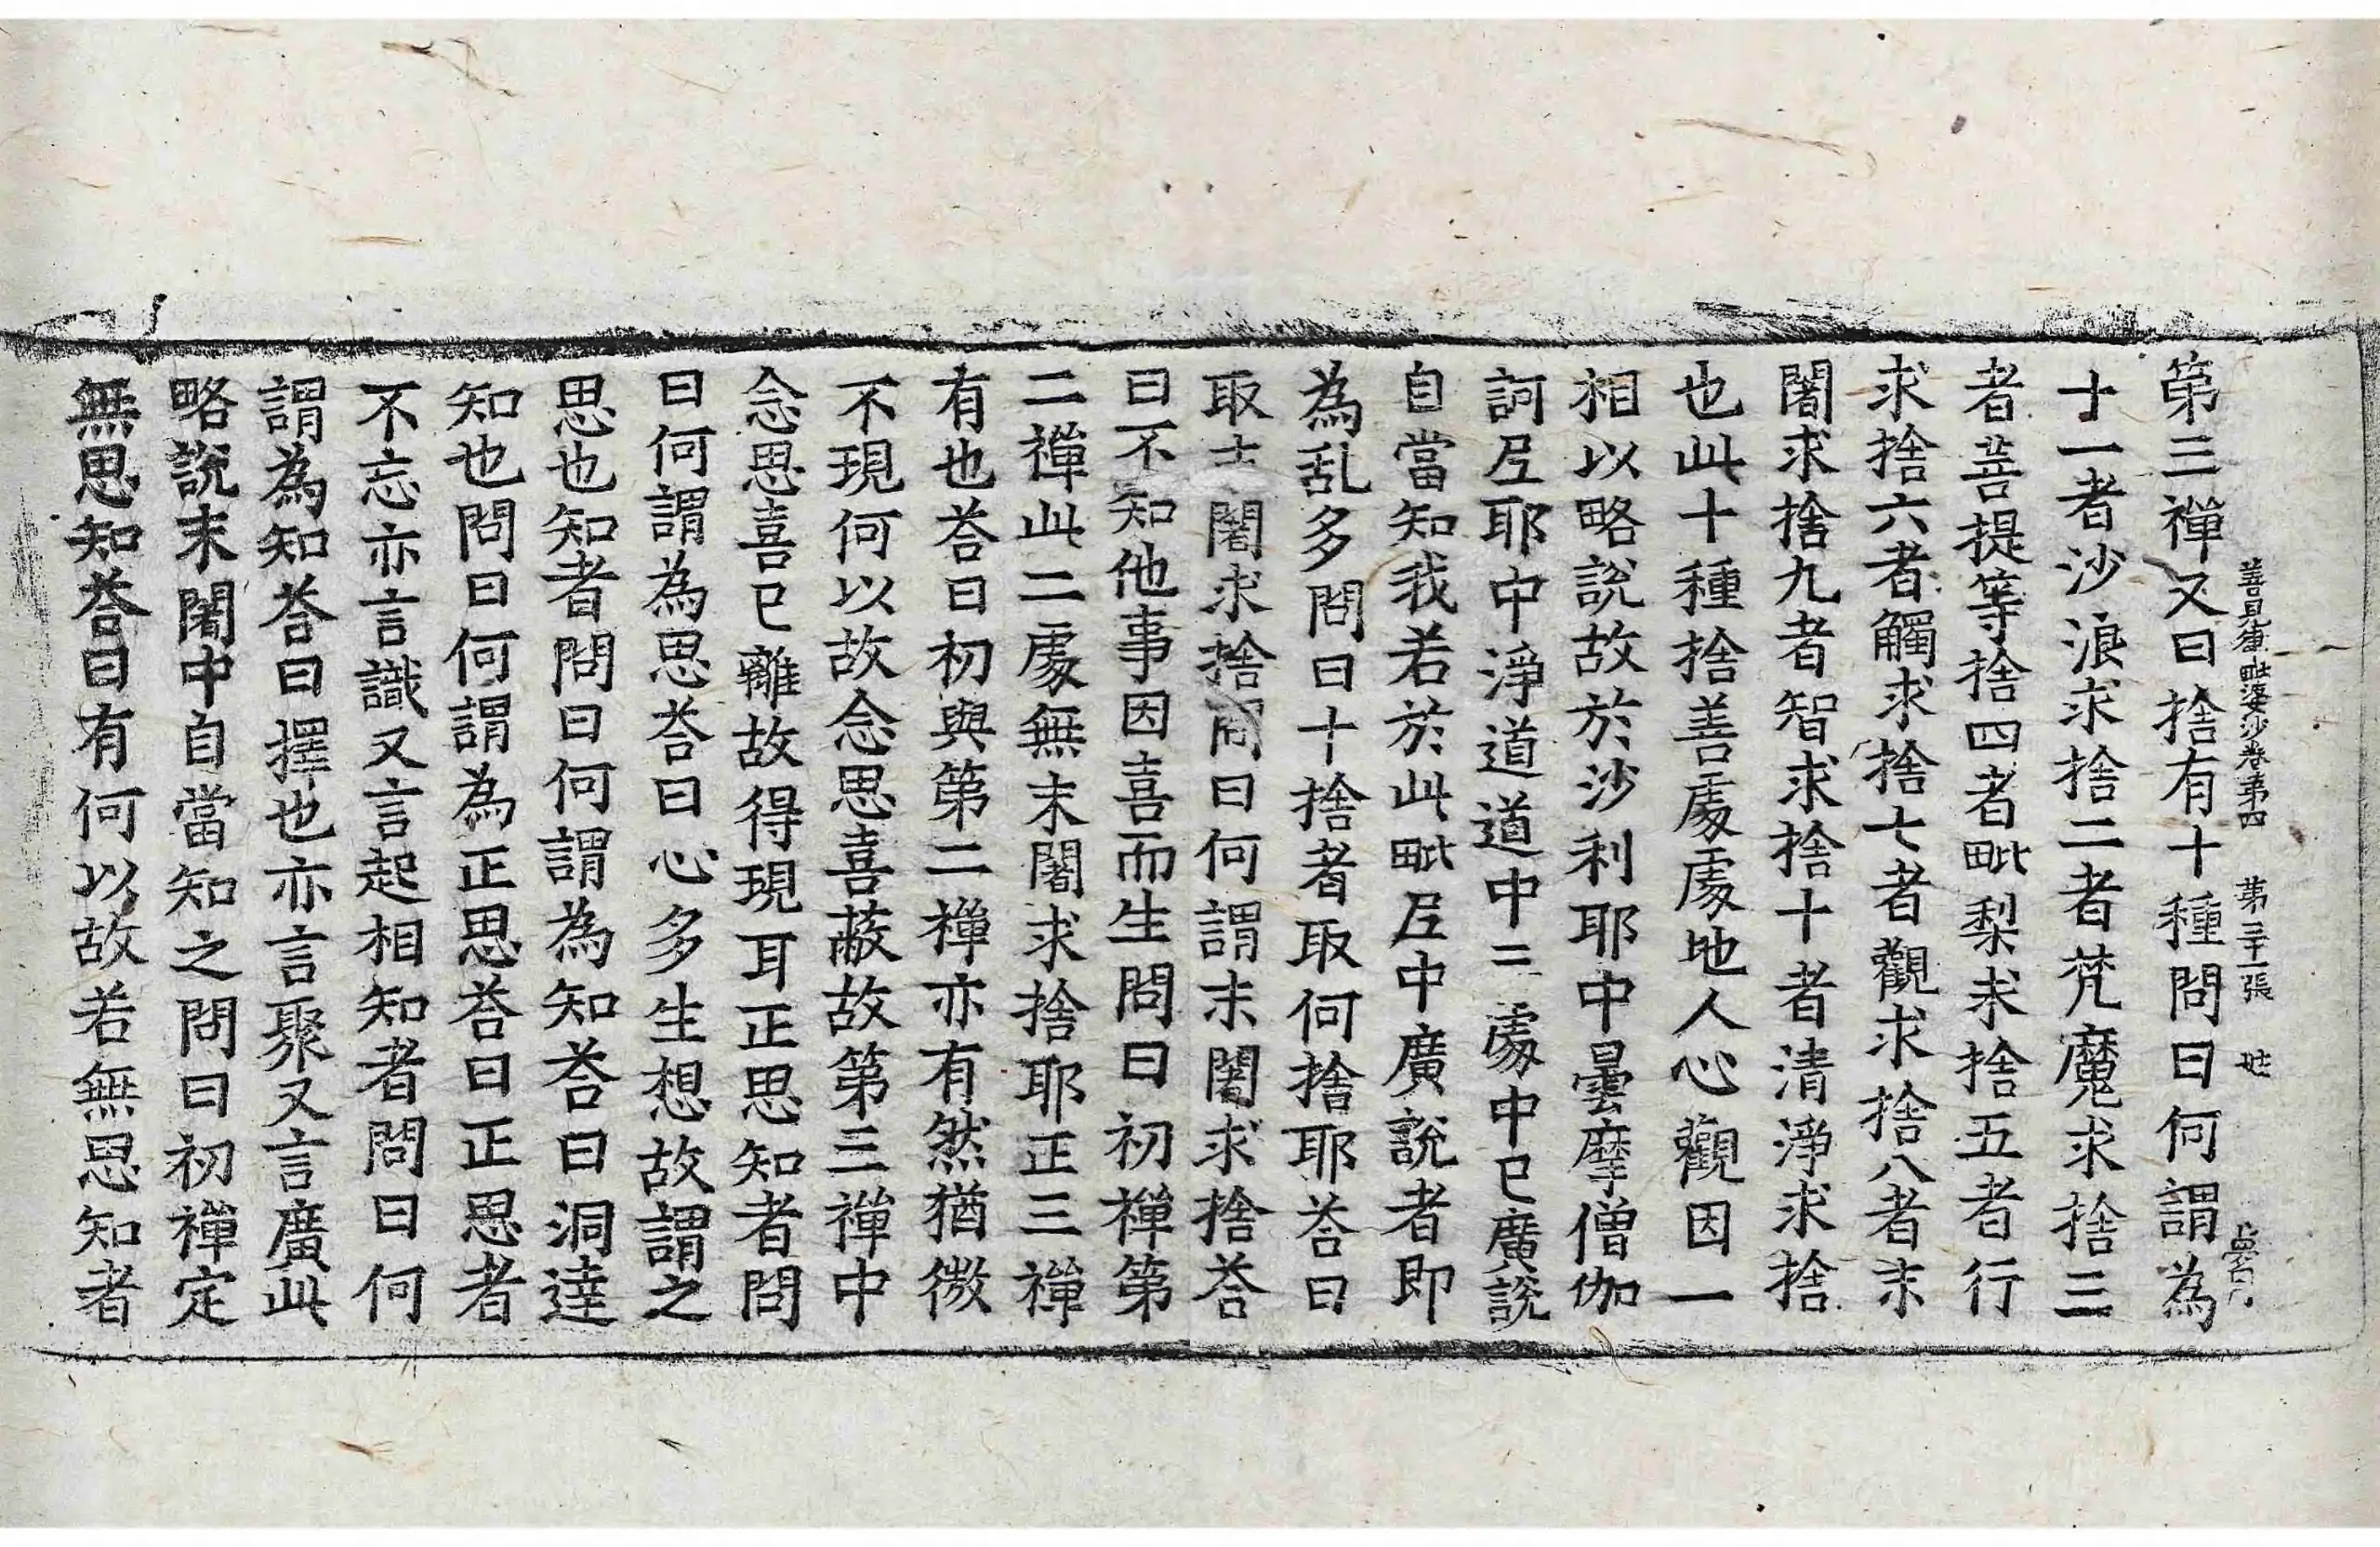 第三禪又曰捨有十種問曰何謂為
十一者沙浪求捨二者梵魔求捨三
者菩提等捨四者毗梨求捨五者行
求捨六者觸求捨七者觀求捨八者末
闍求捨九者智求捨十者清淨求捨
也此十種捨善處處地人心觀因一
相以略說故於沙利耶中曇摩僧伽
訶𡰱耶中淨道道中二處中已廣說
自當知我若於此毗𡰱中廣說者即
為乱多問曰十捨者取何捨耶荅曰
取末闍求捨問曰何謂末闍求捨荅
曰不知他事因喜而生問曰初禪第
二禪此二處無末闍求捨耶正三禪
有也荅曰初與第二禪亦有然猶微
不現何以故念思喜蔽故第三禪中
念思喜已離故得現耳正思知者問
曰何謂為思荅曰心多生想故謂之
思也知者問曰何謂為知荅曰洞達
知也問曰何謂為正思荅曰正思者
不忘亦言識又言起相知者問曰何
謂為知荅曰擇也亦言聚又言廣此
略說末闍中自當知之問曰初禪定
無思知荅曰有何以故若無思知者
善見律毗婆沙卷第四　第三十一張　姓